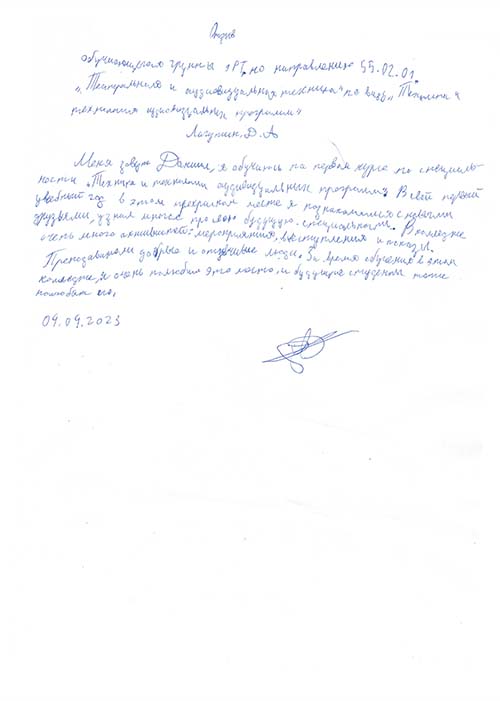 Отзыв
обучающегося группы 1РТ, по направлению 55.02.01.
"Театральная и аудиовизуальная техника" по виду "Техника и
технология аудиовизуальных программ"
Лагутин Д.А
Меня зовут Даниил, я обучаюсь на первом курсе по специаль-
ности "Техника и технологии аудиовизуальных программ". В свой первый
учебный год в этом прекрасном месте я познакомился с новыми
друзьями, узнал многое про мою будущую специальность. В колледже
очень много активностей: мероприятия, выступления и показы.
Преподаватели добрые и отзывчивые люди. За время обучения в этом
колледже, я очень полюбил это место, и будущие студенты тоже
полюбят его.
09.09.2023